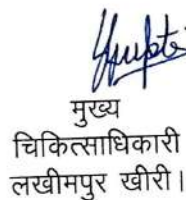 मुख्य
चिकित्साधिकारी
लखीमपुर खीरी।